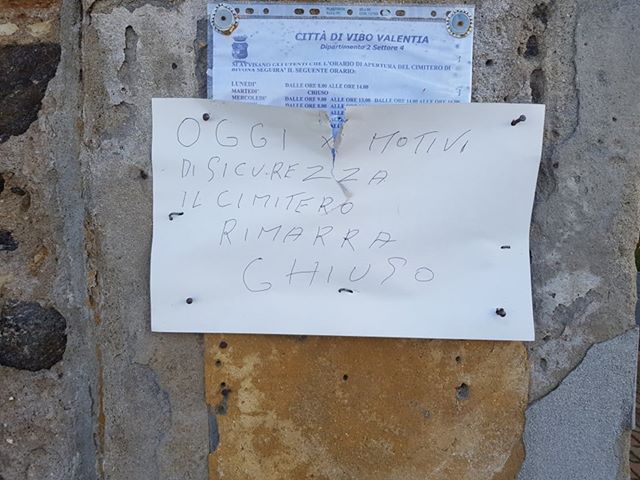 CITTÀ DI VIBO VALENTIA
Dipartimento 2 Settore 4
SI AVVISANO GLI UTENTI CHE L'ORARIO DI APERTURA DEL CIMITERO DI
BIVONA SEGUIRA' IL SEGUENTE ORARIO:
LUNEDI' DALLE ORE 8.00 ALLE ORE 14.00
MARTEDI' CHIUSO
MERCOLEDI' DALLE ORE 9.00 ALLE ORE 13.00 DALLE ORE 14.00 ALLE ORE
OGGI X MOTIVI
DI SICUREZZA
IL CIMITERO
RIMARRA
CHIUSO